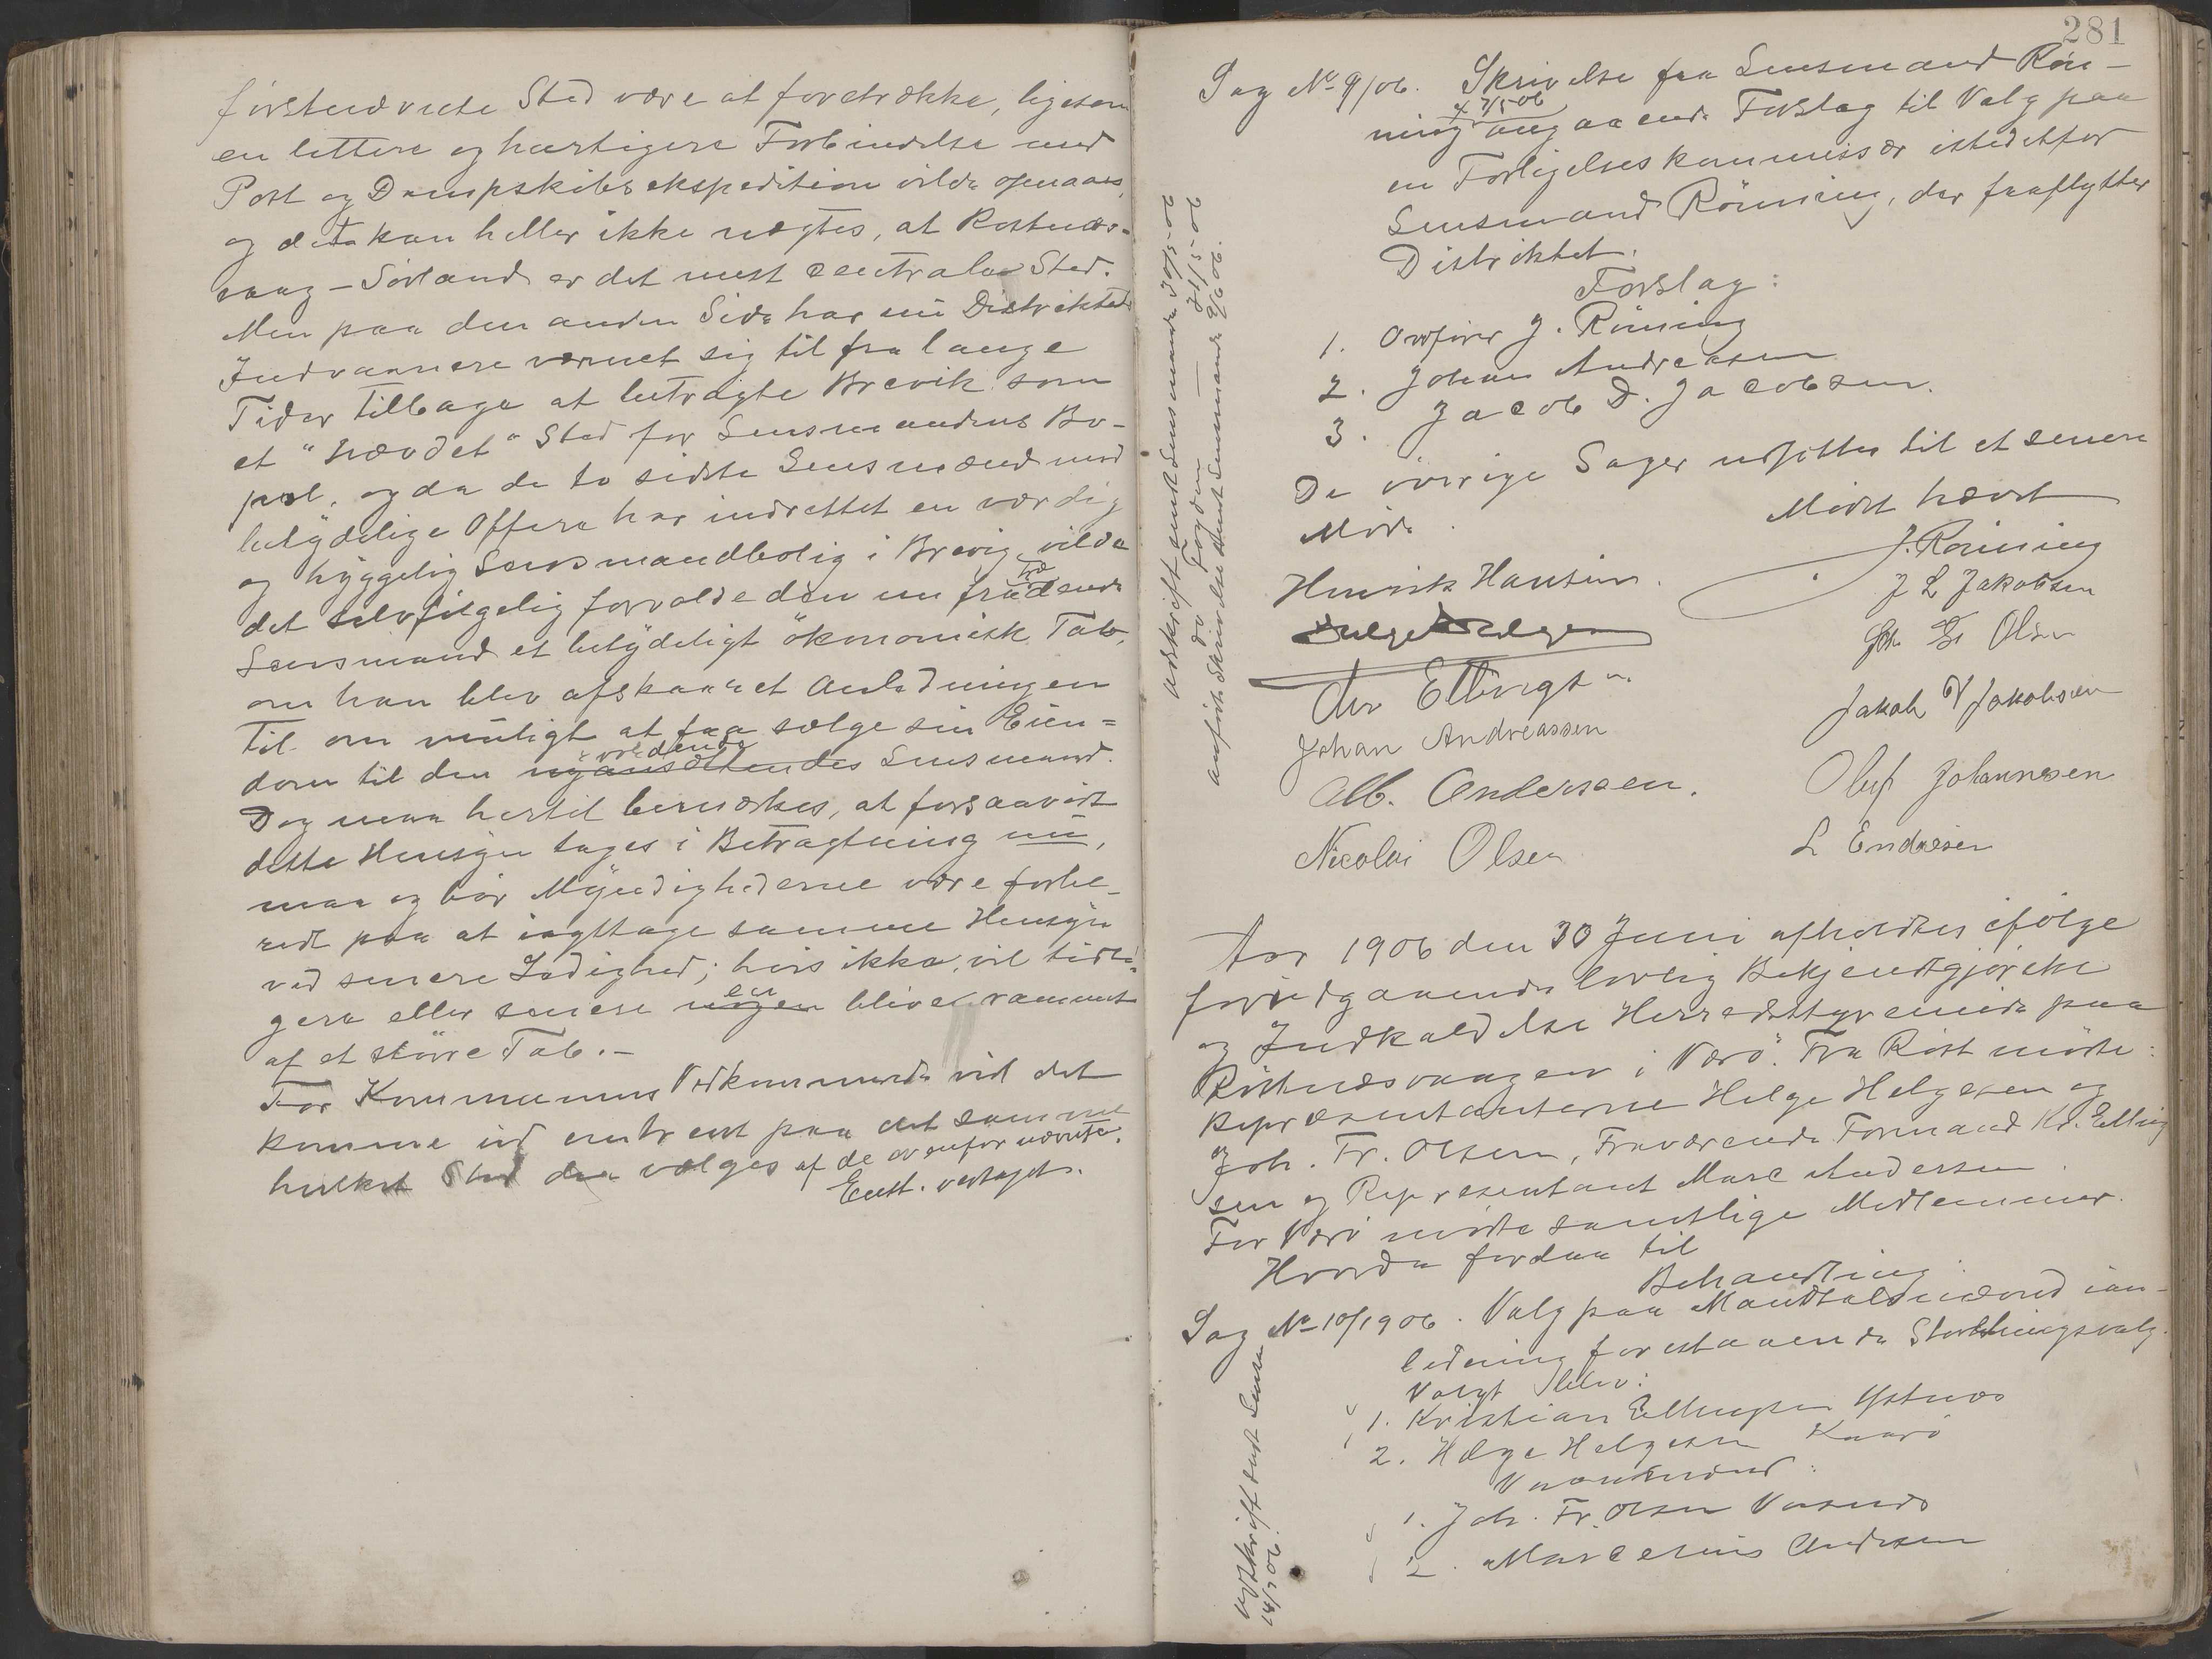 førstnævnte Sted være at foretrække, ligesom
en lettere og hurtigere Forbindelse med
Post og Dampskibsekspedition vilde opnaaes,
og dette kan heller ikke nægtes, at Røstnæs-
vaag - Sørland er det mest centrale Sted.
Men paa den anden Side har nu Distriktets
Indvaanere vænnet sig til fra lange
Tider tilbage at betragte Brevik som
et "hævdet" Sted for Lensmandens Bo-
pæl, og da de to sidste Lensmænd med
betydelige Offere har indrettet en værdig
og hyggelig Lensmandbolig i Brevig, vilde
det selvfølgelig forvolde den nu fratrædende
Lensmand et betydeligt økonomisk Tab,
om han blev afskaaret Anledningen
til om muligt at faa sælge sin Eien=
dom til den nyansættendes vordende Lensmand.
Dog maa hertil bemærkes, at forsaavidt
dette Hensyn tages i Betragtning nu,
maa og bør Myndighederne være forbe-
redt paa at iagttage samme Hensyn
ved senere Ledighed; hvis ikke, vil tidli-
gere eller senere nogen en blive rammet
af et større Tab.-
For Kommunens Vedkommende vil det
komme ud omtrent paa det samme
hvilket Sted der vælges af de ovenfor nævnte.
Enst. vedtaget.
281
Sag No 9/06. Skrivelse fra Lensmand Røn-
ning 7/5 06 angaaende Forslag til Valg paa
en Forligelseskommissær istedetfor
Lensmand Rønning, der fraflytter
Distriktet.
Forslag:
1. Ordfører J. Rønning
2. Johan Andreassen
3. Jacob D. Jacobsen.
De øvrige Sager udsættes til et senere
Møde. Mødet hævet
J. Rønning
Henrik Hansen. J L Jakobsen
Helge Helgesen Joh Fr Olsen
Chr Ellingsen Jakob V Jakobsen
Johan Andreassen
Alb. Andersen. Oluf Johannesen
Nicolai Olsen L Endresen
Udskrift sendt Lensmanden 30/5-06
do Fogden 31/5-06
Skrivelse sendt Lensmand 2/6 06.
Aar 1906 den 30 Juni afholdtes ifølge
forudgaaende lovlig Bekjendtgjørelse
og Indkaldelse Herredsstyremøde paa
Røstnæsvaagen i Værø. Fra Røst mødte:
Repræsentanterne Helge Helgesen og
Joh. Fr. Olsen, Fraværende Formand Kr. Elling
sen og Repræsentant Marc Andersen.
For Værø mødte samtlige Medlemmer.
Hvorda fordaa til
Behandling.
Sag No 10/1906. Valg paa Mandtalsmænd ian-
ledning forestaaende Storthingsvalg.
Valgt blev:
1. Kristian Ellingsen Ystnæs
2. Helge Helgesen Kaarø
Varamænd:
1. Joh. Fr. Olsen
2. Marcelius Andersen
Udskrift sendt Lensm
14/7 06.